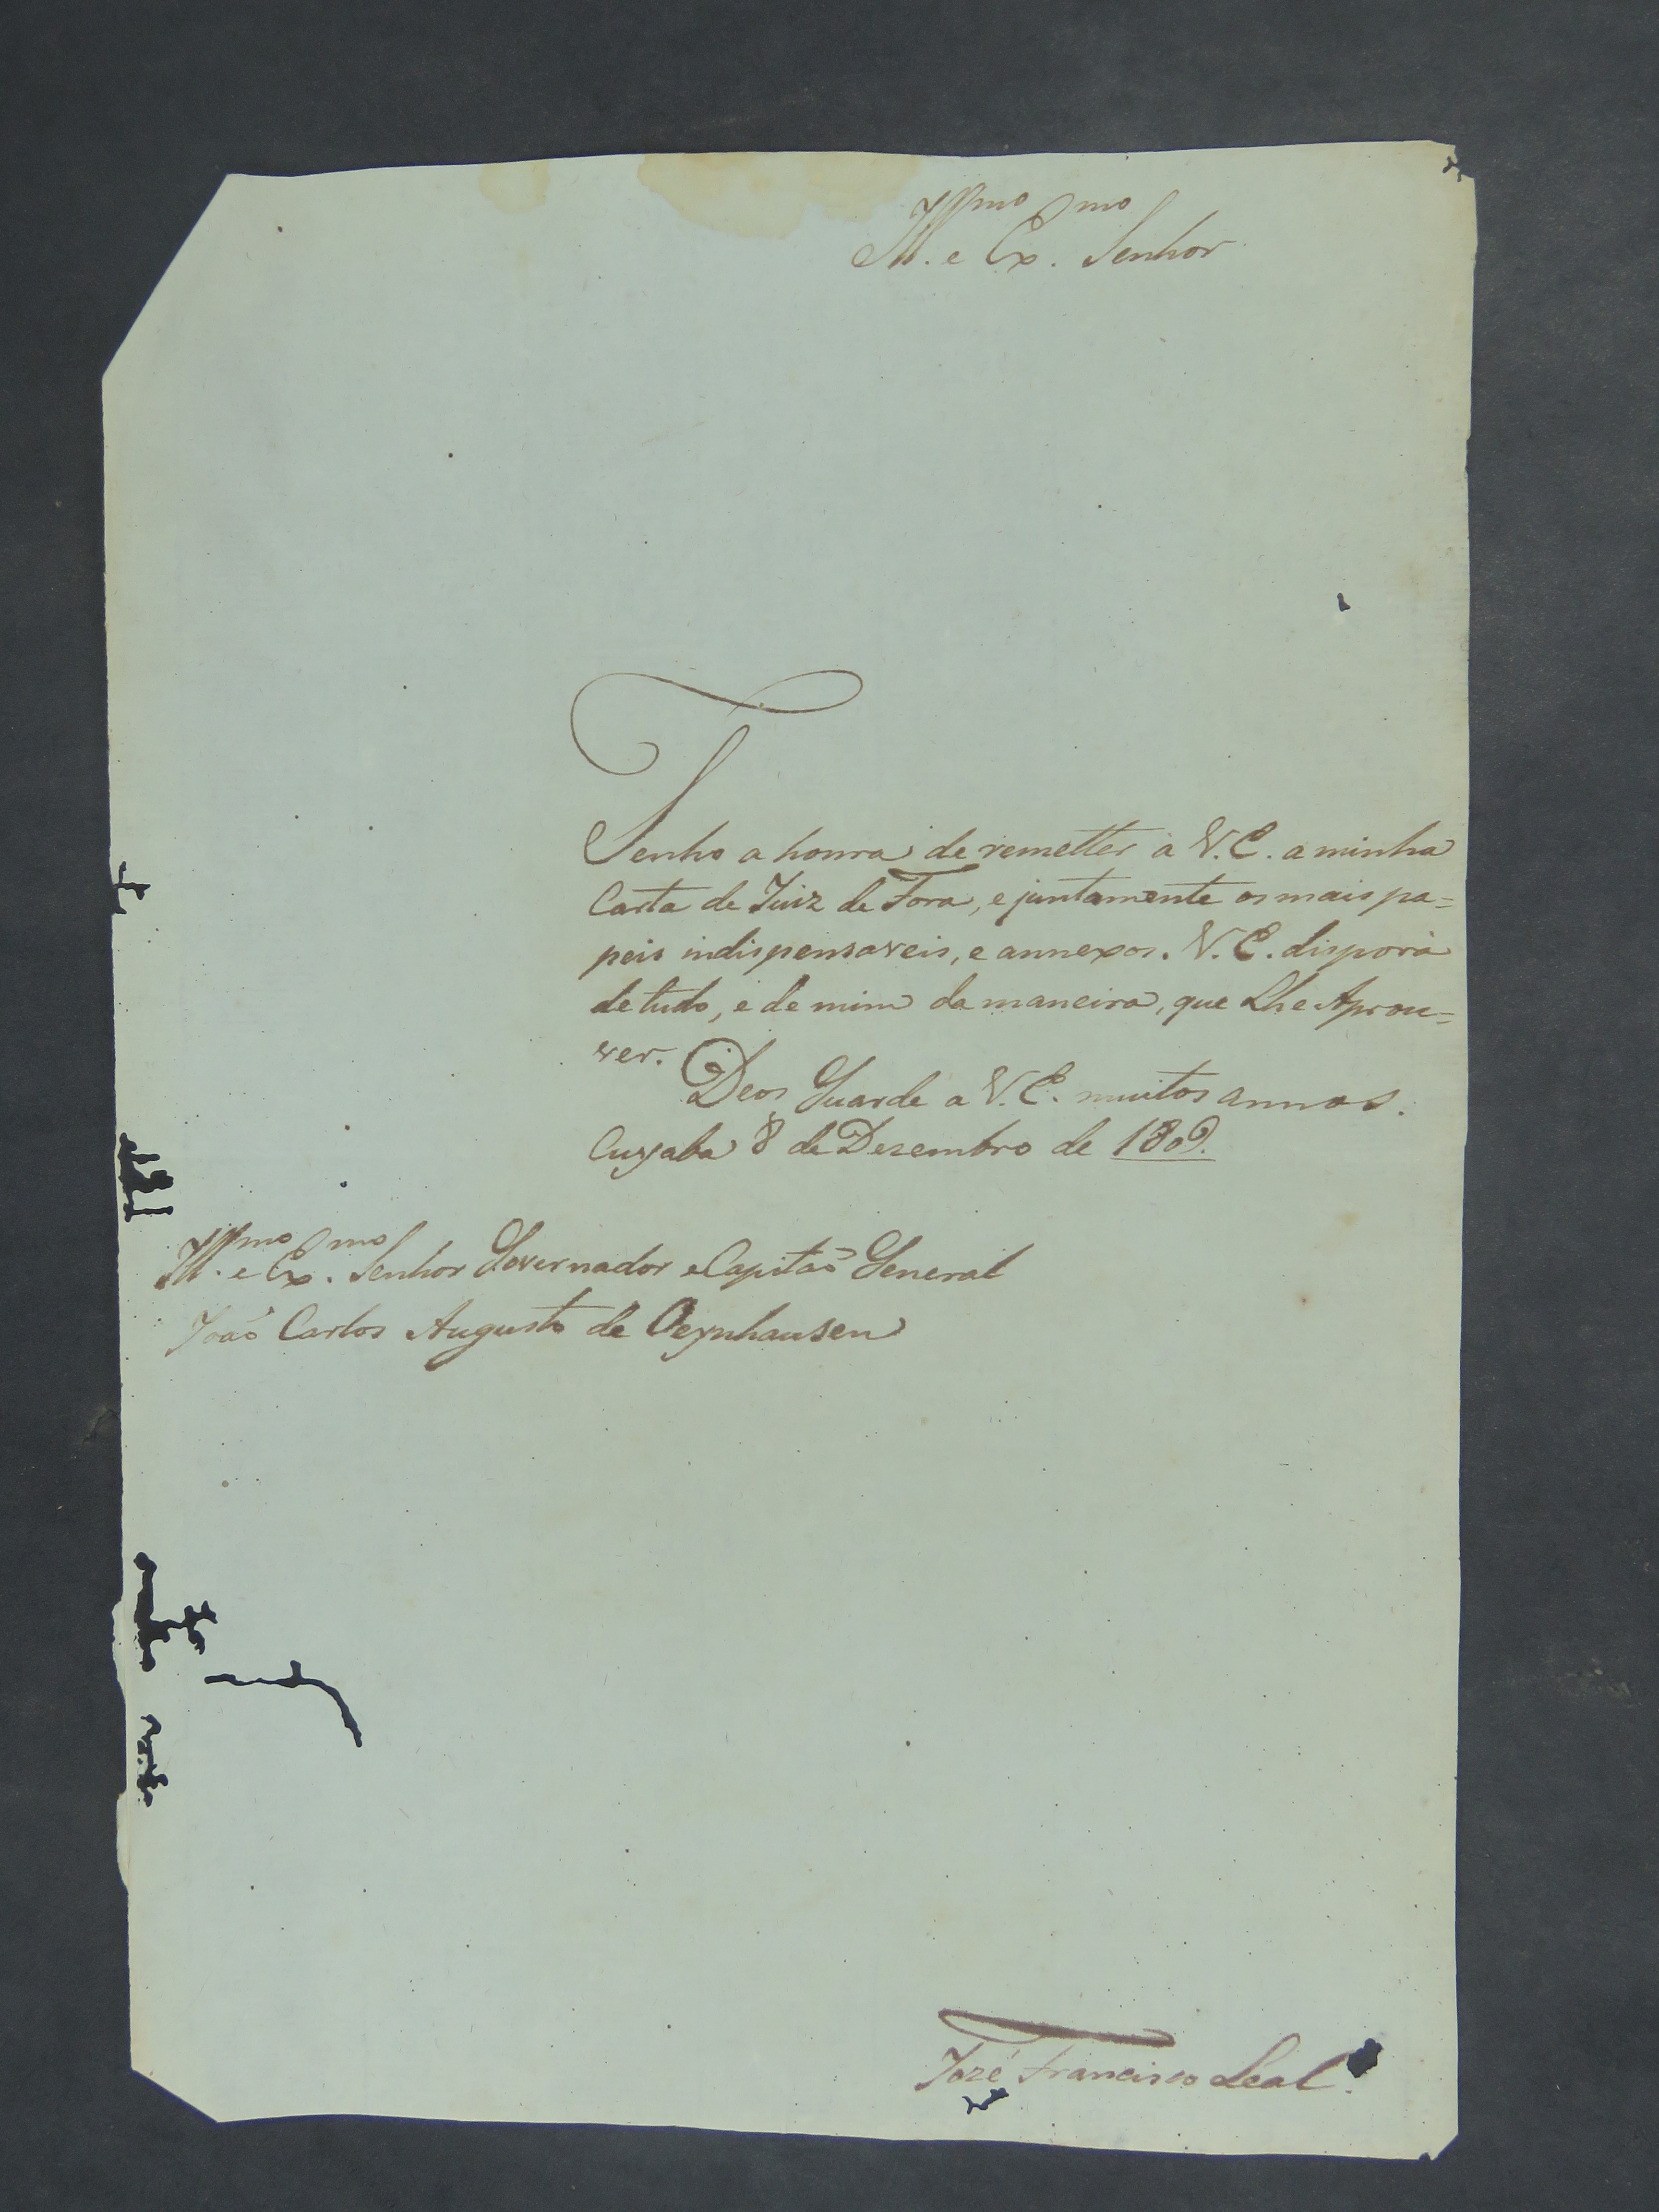 Ill.mo e Ex.mo Senhor
Tenho a honra de remetter a V. E. a minha
Carta de Juiz de Fora, e juntamente os mais pa=
peis indispensaveis, e annexos. V. E. disporá
de tudo, e de mim da maneira, que Lhe Aprou=
ver.
Deos Guarde a V. E. muitos annos.
Cuyaba 8 de Dezembro de 1809.
Ill.mo e Ex.mo Senhor Governador e Capitaõ General
Joaõ Carlos Augusto de Oeynhausen
Jozé Francisco Leal.